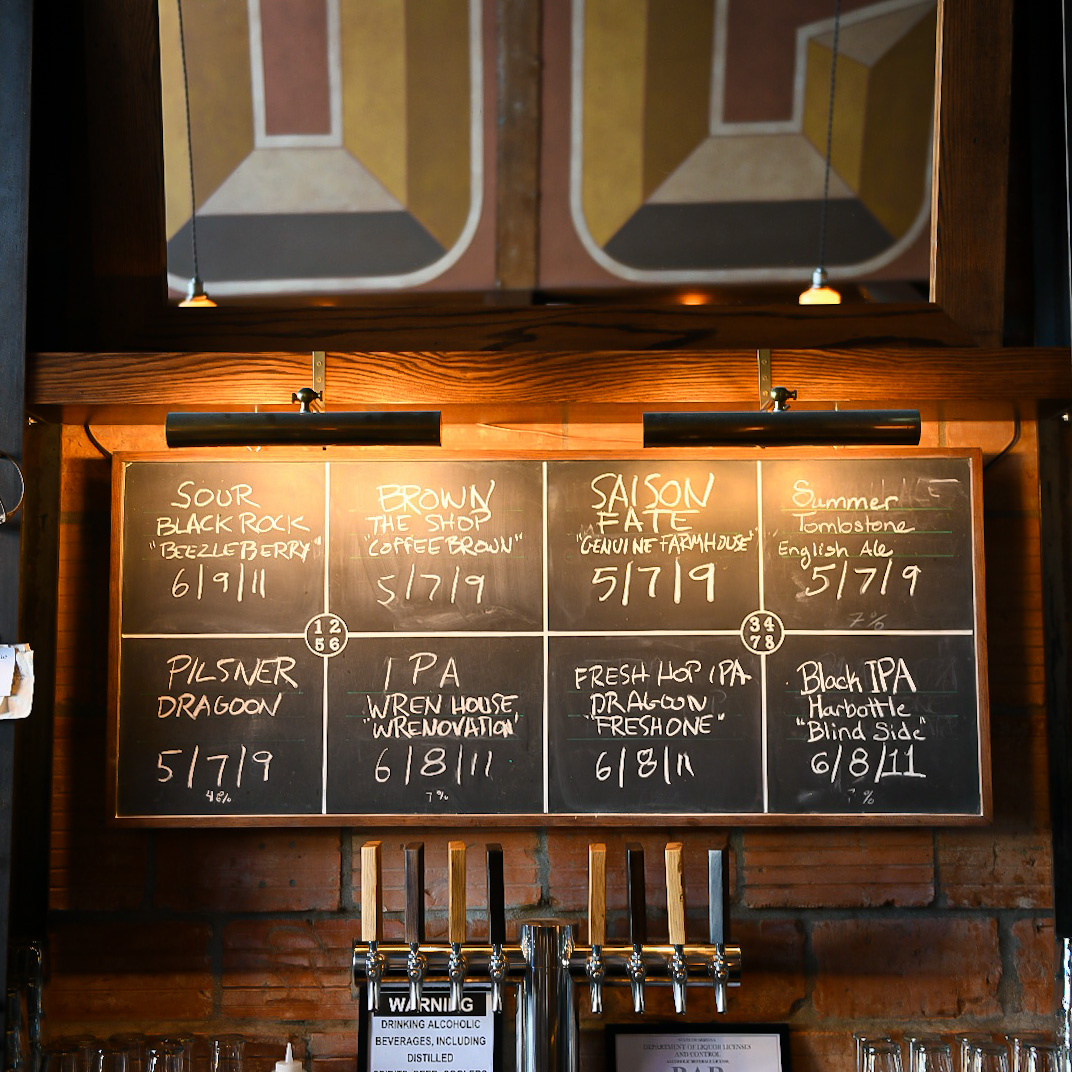 SOUR
BLACK ROCK
"BEEZLEBERRY"
6/9/11
BROWN
THE SHOP
"COFFEE BROWN"
5/7/9
SAISON
FATE
"GENUINE FARMHOUSE"
5/7/9
Summer
Tombstone
English Ale
5/7/9
7%
1 2
5 6
3 4
7 8
PILSNER
DRAGOON
5/7/9
IPA
WREN HOUSE
"WRENOVATION"
6/8/11
7%
FRESH HOP IPA
DRAGOON
"FRESHONE"
6/8/11
Black IPA
Harbottle
"Blind Side"
6/8/11
%
WARNING
DRINKING ALCOHOLIC
BEVERAGES, INCLUDING
DISTILLED
DEPARTMENT OF LIQUOR LICENSES
AND CONTROL
BAR